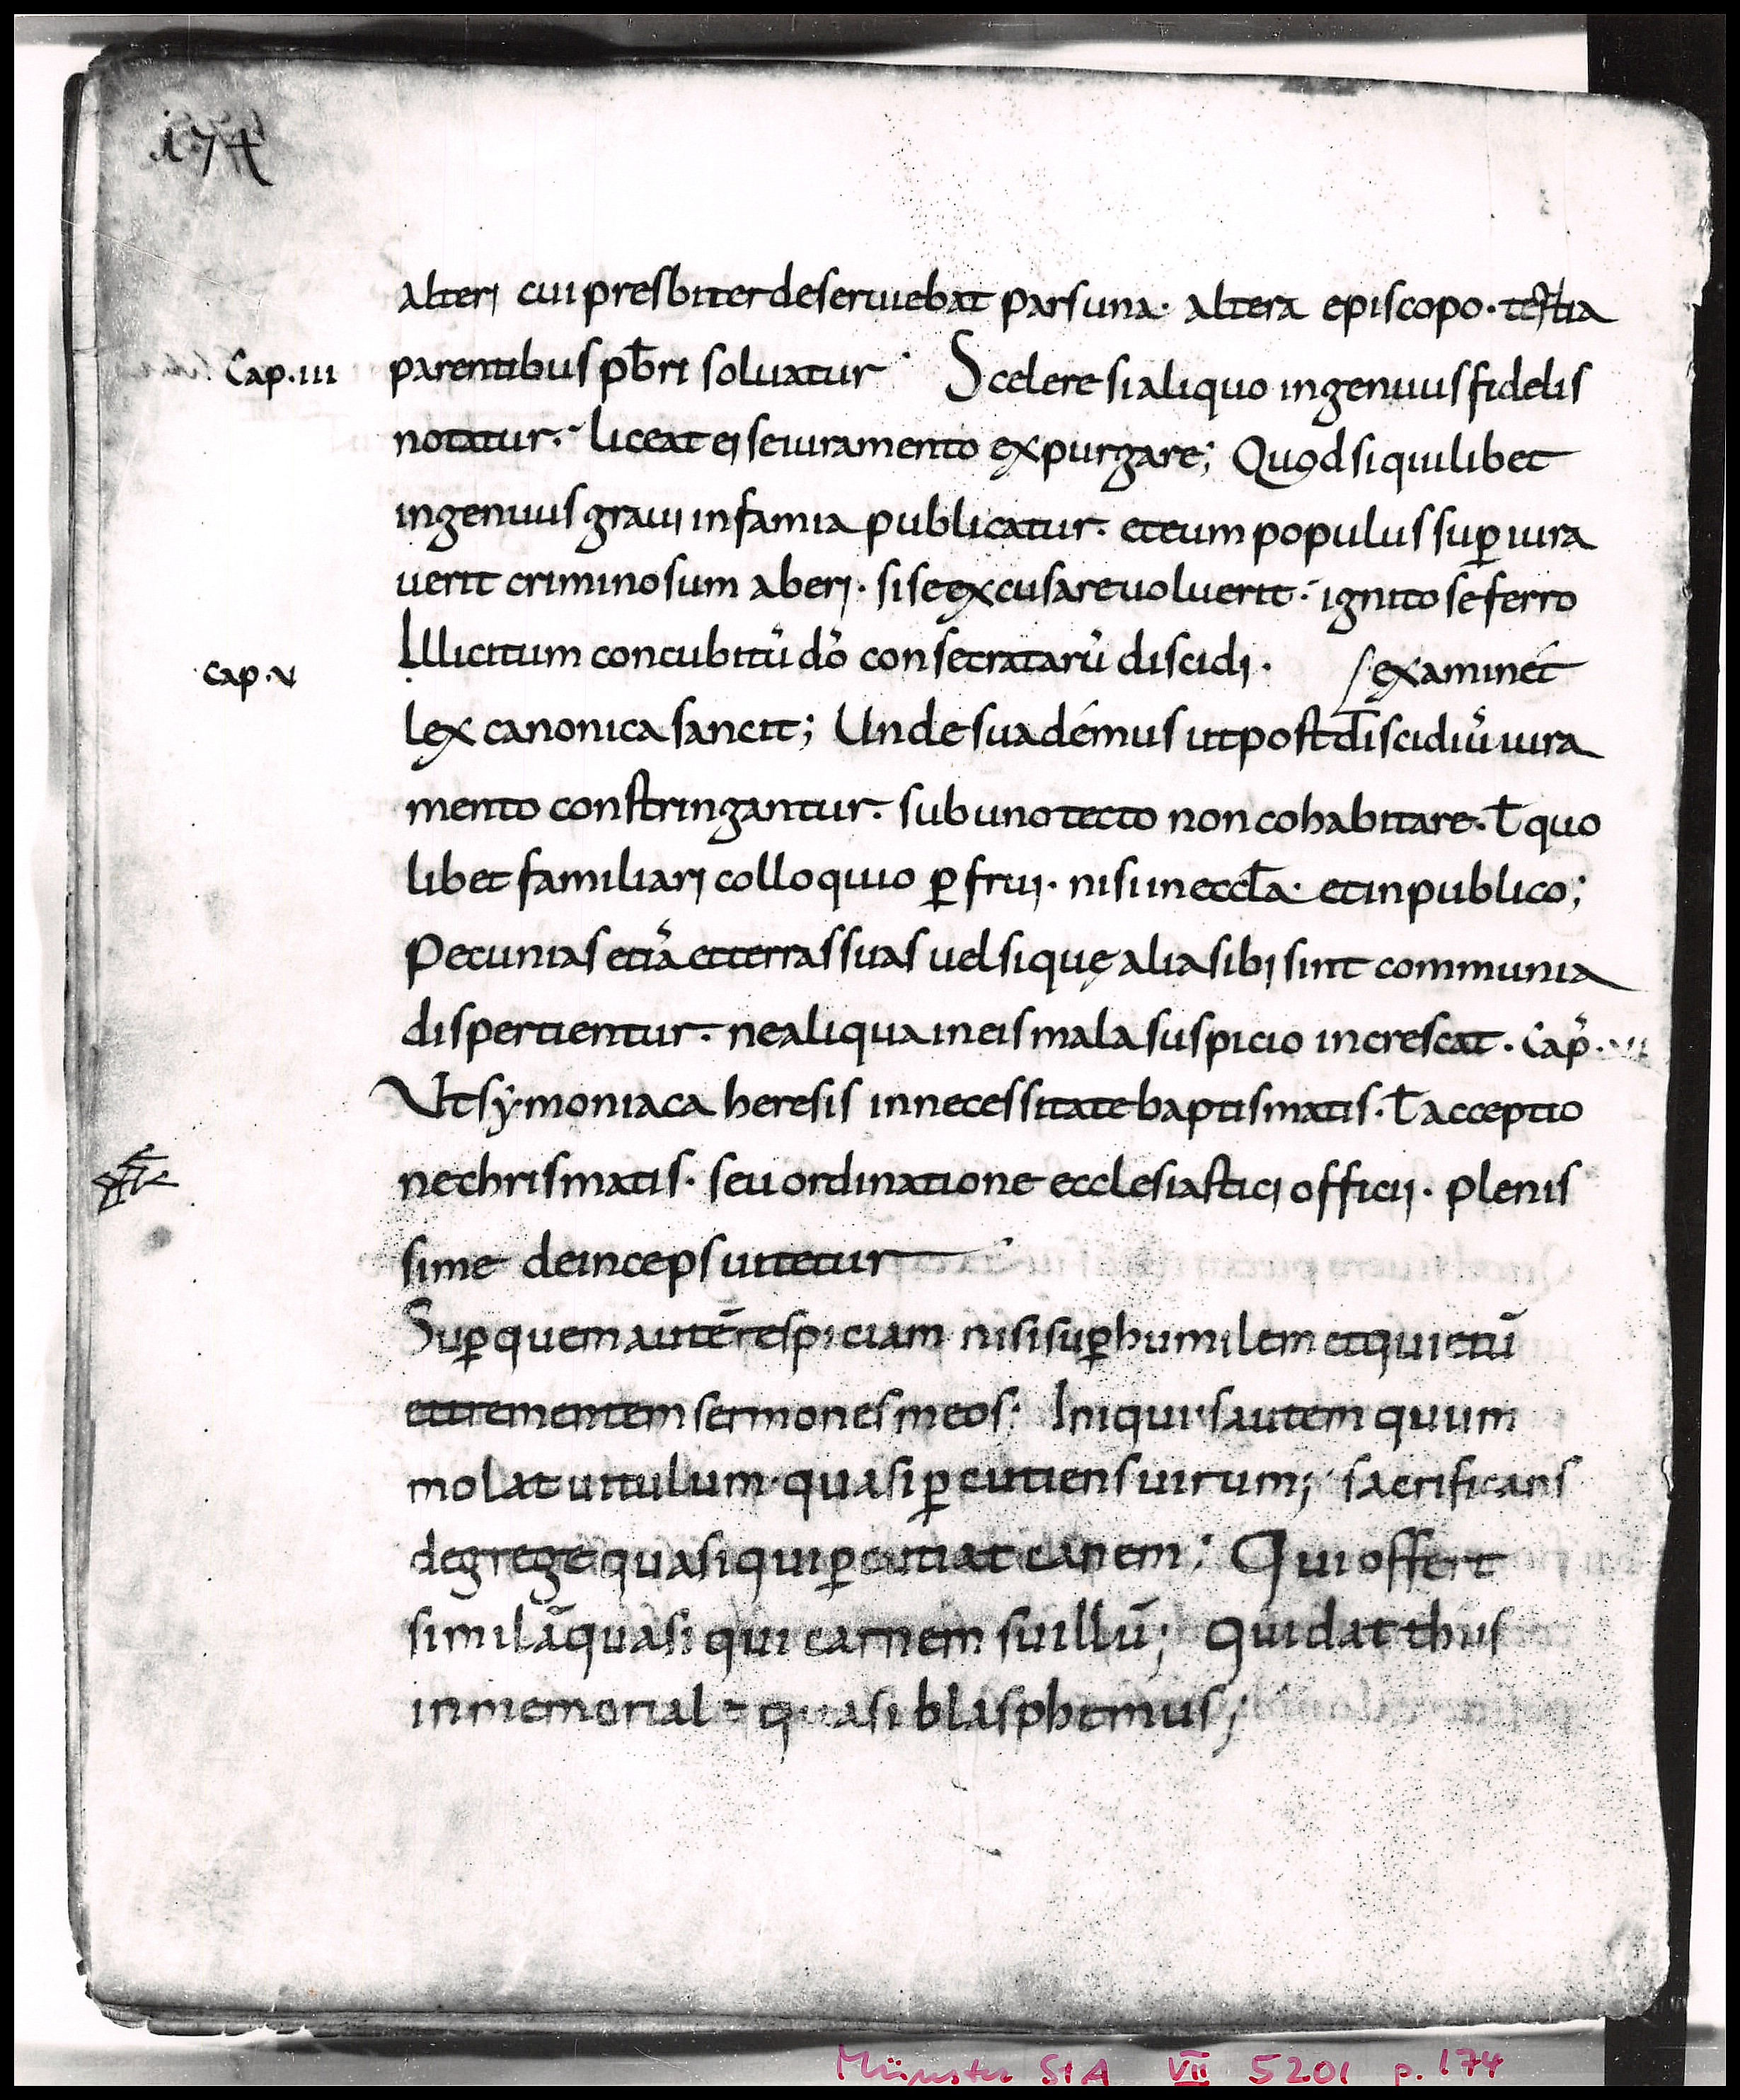 174
alteri cui presbiter deseruiebat pars una· altera episcopo· tertia
Cap·iii parentibus pb̄ri soluatur· Scelere si aliquo ingenuus fidelis
notatur· liceat ei se iuramento expurgare; Quod si quilibet
ingenuus graui infamia publicatur· et eum populus suꝑ iura
uerit criminosum aberi· si se excusare uoluerit· ignito se ferro
Cap·v Illicitum concubitū dō consecratarū discidi· examinet
lex canonica sancit; Unde suademus ut post discidiū iura
mento constringantur· sub uno tecto non cohabitare· ł quo
libet familiari colloquio ꝑfrui· nisi in eccła· et in publico;
Pecunias etiā et terras suas uel si quę alia sibi sint communia
dispertientur· ne aliqua in eis mala suspicio increscat· Cap̄·vi
Ut sẏmoniaca heresis in necessitate baptismatis· ł acceptio
ne chrismatis· seu ordinatione ecclesiastici officii· plenis
sime deinceps uitetur
Suꝑ quem autē respiciam nisi suꝑ humilem et quietū
et trementem sermones meos· Iniquus autem qui im
molat uitulum· quasi ꝑcutiens uirum; sacrificans
de grege quasi qui ꝑcutiat canem; Qui offert
similā quasi qui carnem suillū; Qui dat thus
in memoriale quasi blasphemus;
Münster StA VII 5201 p. 174